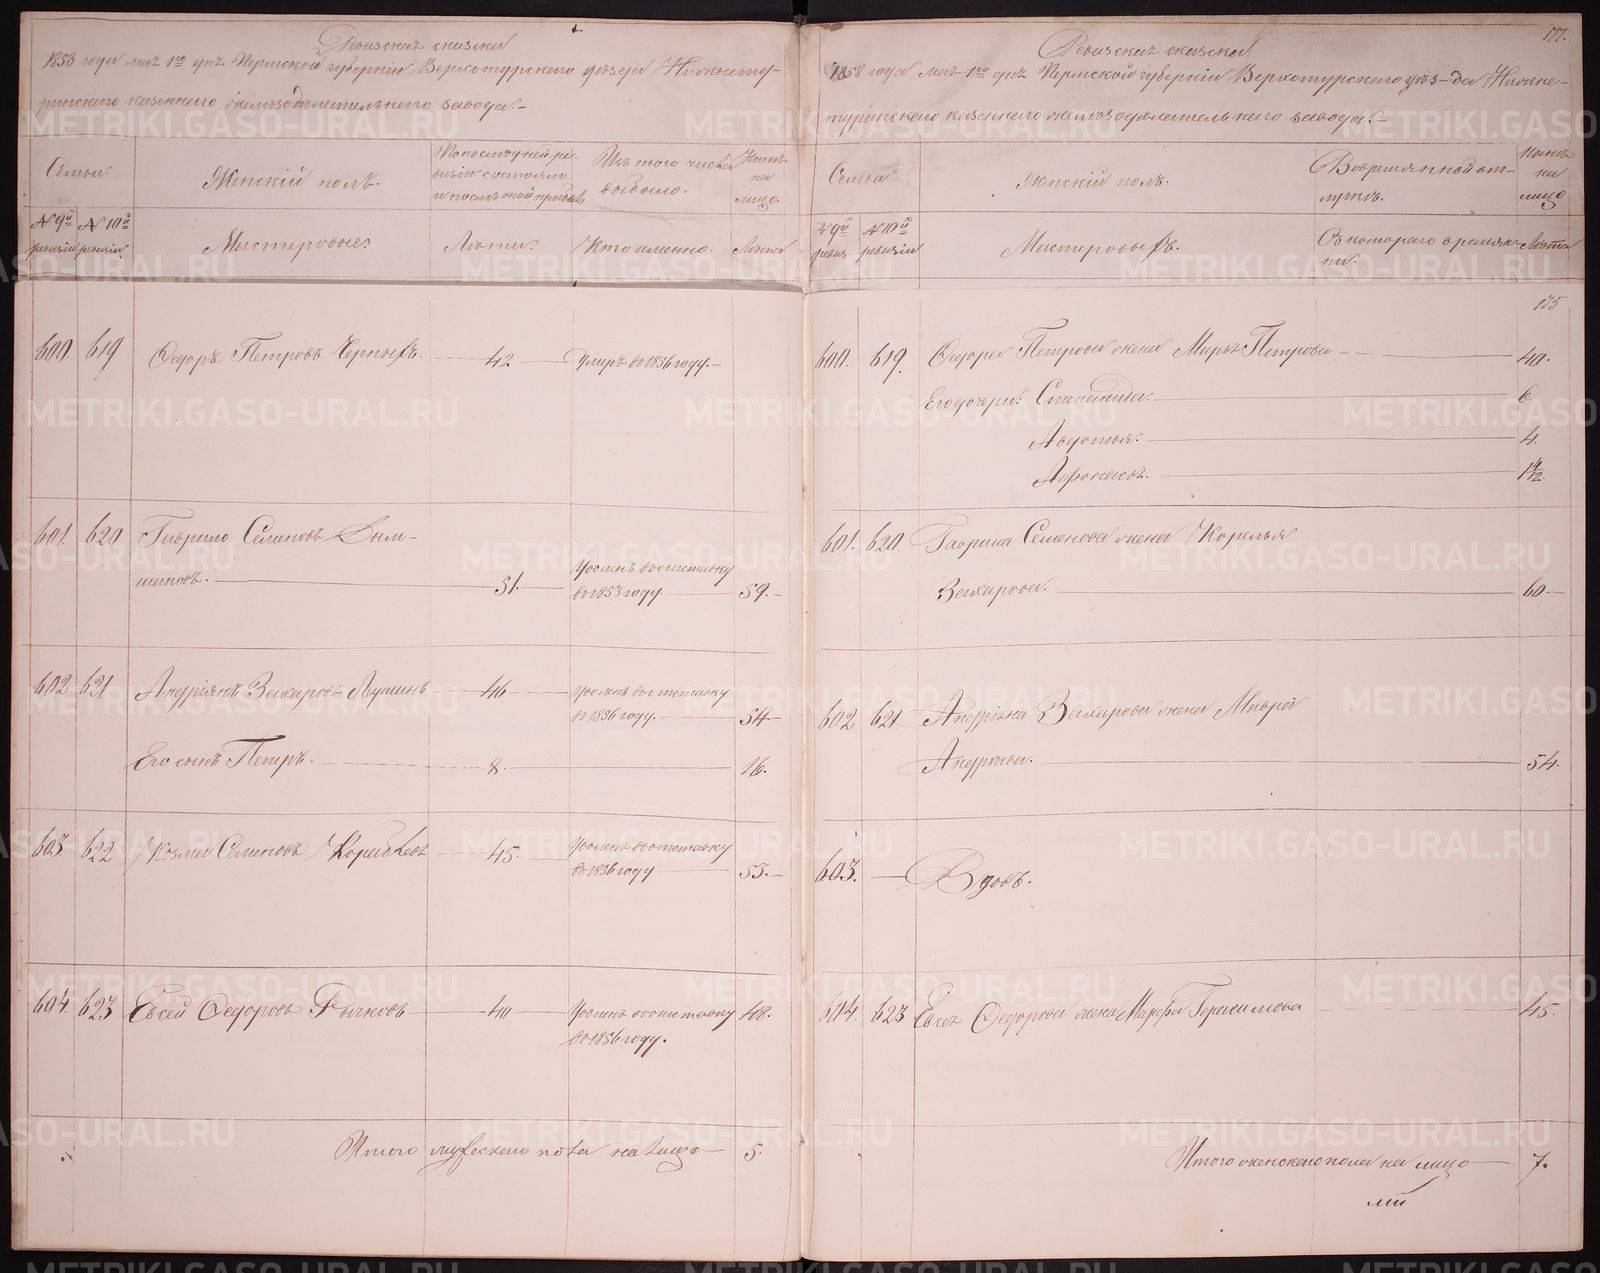 Ревизская сказка
1858 года мая 1го дня Пермской губерніи Верхотурского уѣзда Нижнету-
ринского казенного желѣзодѣлательного завода.
Семьи.
Женскій полъ.
По последней ре-
визіи состояло
и послѣ оной прибыло
Изъ того числа
выбыло.
Нынѣ
на
лицо.
№ 9й ревизіи
№ 10й ревизіи
Мастеровые.
Лѣта.
Кто именно.
Лѣта
600. 619 Федоръ Петровъ Черныхъ. 42 Умеръ въ 1856 году.
601. 620 Гаврило Семеновъ
51. Уволенъ въ отставку
въ 1853 году. 59.
602 621 Андріянъ Захаровъ 46 Уволенъ въ отставку
въ 1856 году. 54
Его сынъ Петръ. 8. 16.
603. 622 Козма Семеновъ 45. Уволенъ въ отставку
въ 1856 году 53.
604. 623 Евсей Федоровъ Рычковъ 40 Уволенъ въ отставку 48.
въ 1856 году.
Итого мужеского пола на лицо 5.
177.
Ревизская сказка
1858 года мая 1го дня Пермской губерніи Верхотурского уѣз-да Нижне-
туринского казенного желѣзодѣлательного завода.
Семьи
Женскій полъ.
Во временной от-
лучкѣ.
Нынѣ
на
лицо
№ 9й ревиз.
№ 10й ревизіи
Мастеровыхъ.
Съ которого време-
ни.
Лѣта
175
600. 619. Федора Петрова жена Марья Петрова 40.
Его дочери: Степанида. 6.
Авдотья. 4.
601. 620. Гаврила Семенова жена
Захарова. 60
602 621. Андріяна Захарова жена Мавра
Андреева. 54.
603. Вдовъ.
604. 623 Евсея Федорова жена Марфа Герасимова 45.
Итого женского пола на лицо 7.
METRIKI.GASO-URAL.RU